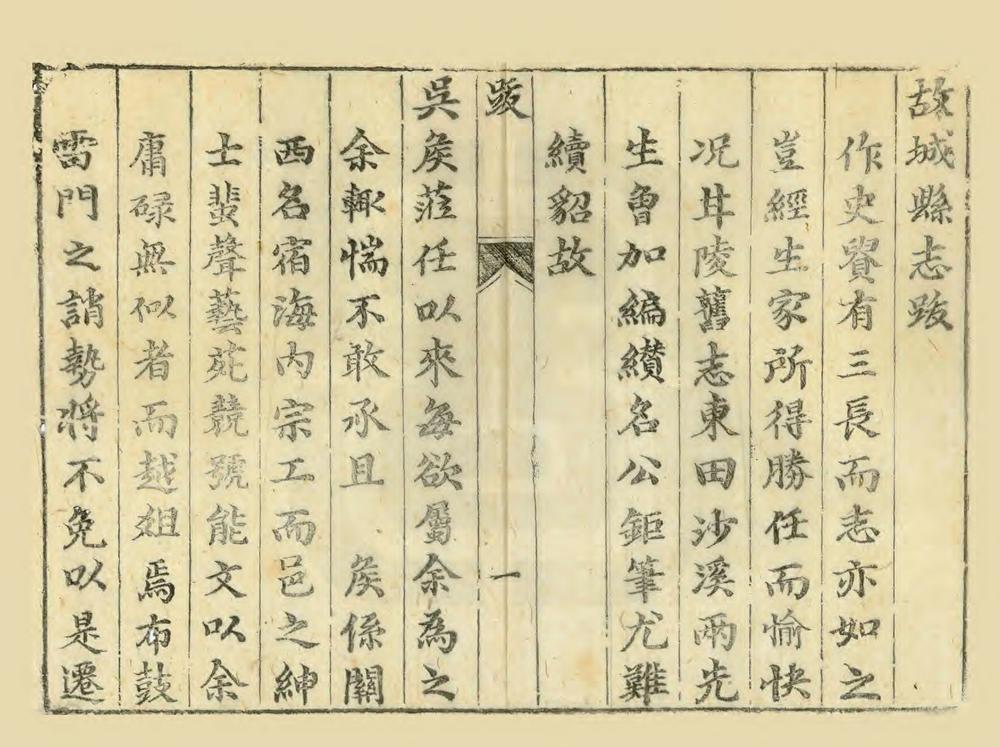 故城縣志跋
作史貴有三長而志亦如之
豈經生家所得勝任而愉快
况甘陵舊志東田沙溪兩先
生曾加編纘名公鉅筆尤難
續貂故
跋 一
吳矦蒞任以來每欲屬余為之
余輙惴不敢承且 矦係關
西名宿海內宗工而邑之紳
士蜚聲藝苑競號能文以余
庸碌無似者而越俎焉布鼓
雷門之誚勢將不免以是遷